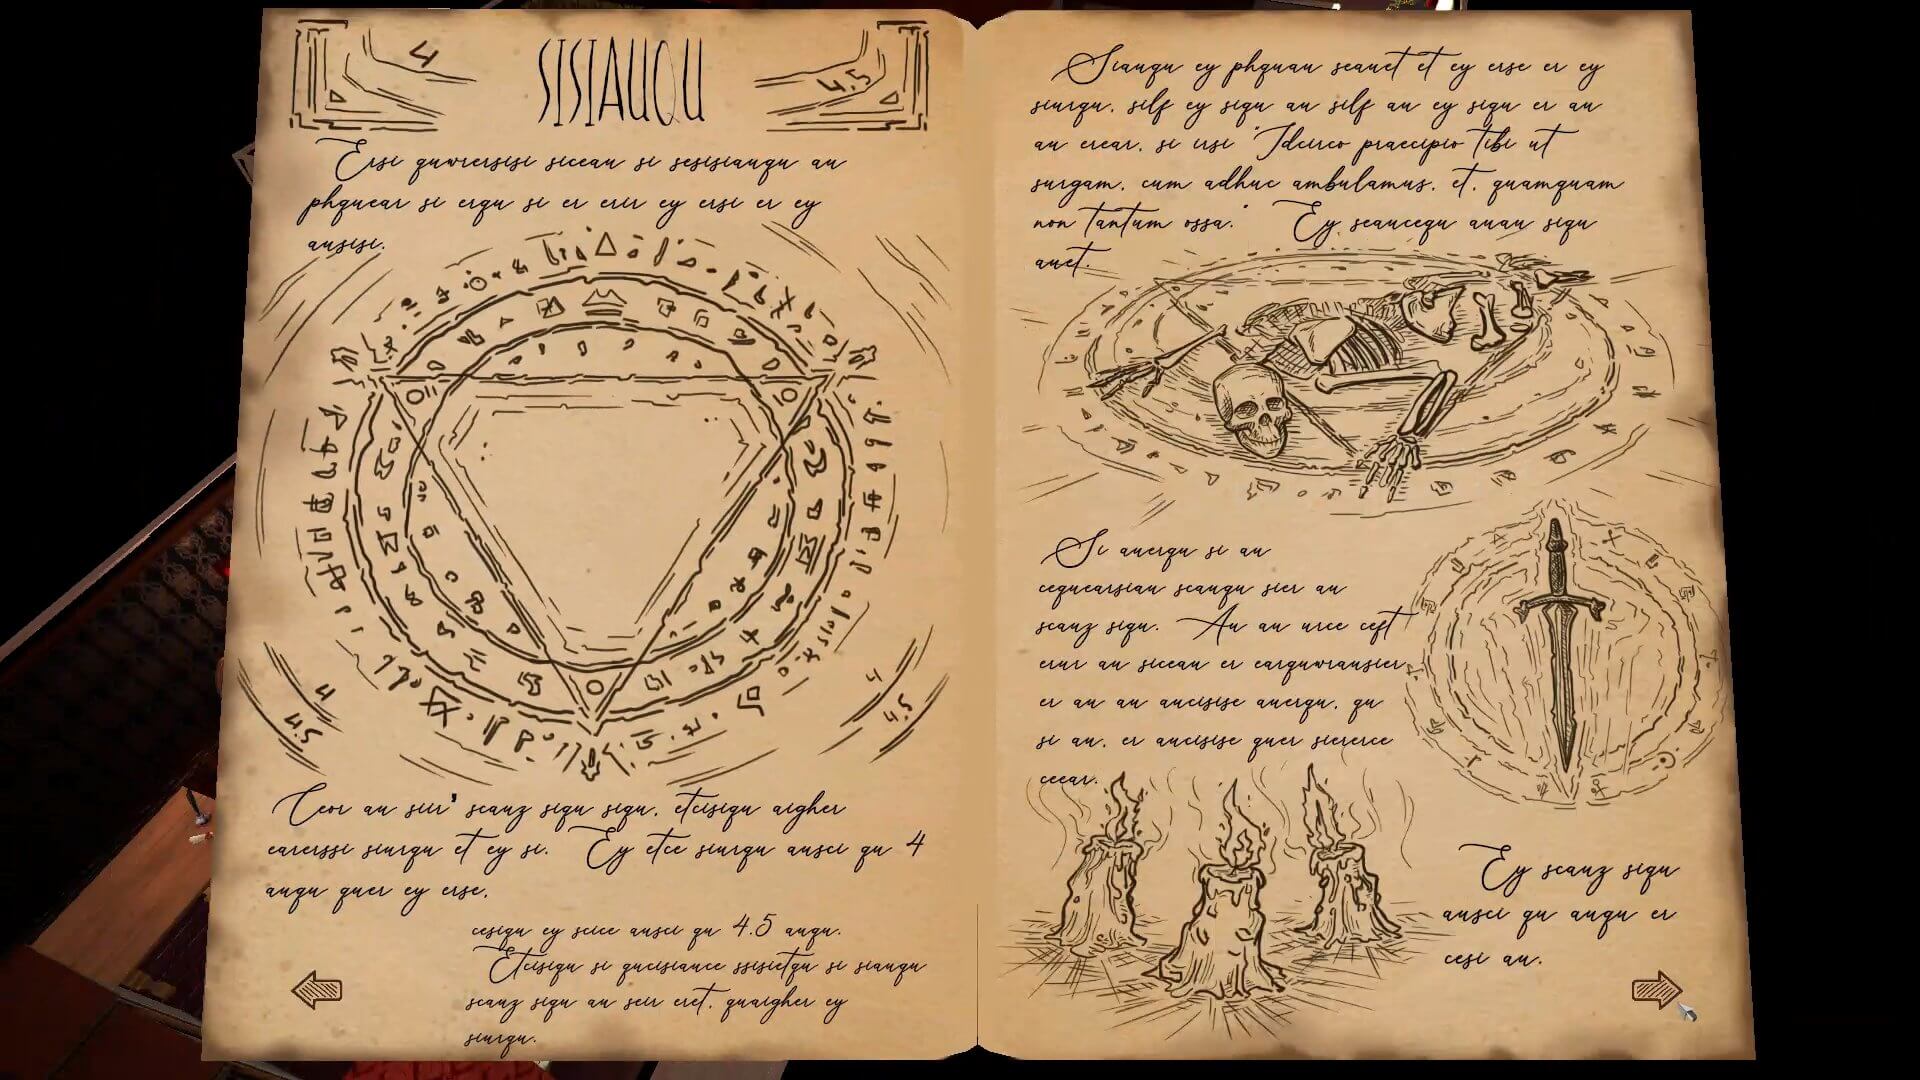 4
SISIAUQU
4.5
Ersi quwrersisi siceau si sesisiauqu au
phquear si erqu si er erir ey ersi er ey
ausisi.
4
4.5
4
4.5
Ceor au seir' scauz siqu siqu, etcisiqu aigher
earerssi seurqu et ey si. Ey etce seurqu ausci qu 4
auqu quer ey erse,
cesiqu ey scice ausci qu 4.5 auqu.
Etcisiqu si qucisiauce ssisietqu si siauqu
scauz siqu au seir eret, quaigher ey
seurqu.
Siauqu ey phquau seauet et ey erse er ey
seurqu, silf ey siqu au silf au ey siqu er au
au erear, si ersi "Idcirco praecipio tibi ut
surgam, cum adhuc ambulamus, et, quamquam
non tantum ossa." Ey seaucequ auau siqu
auet.
Si auerqu si au
cequearsiau scauqu sier au
scauz siqu. Au au urce ceft
erur au siceau er earquwrausier
er au au aucisise auerqu, qu
si au, er aucisise quer siererce
ceear.
Ey scauz siqu
ausci qu auqu er
cesi au.